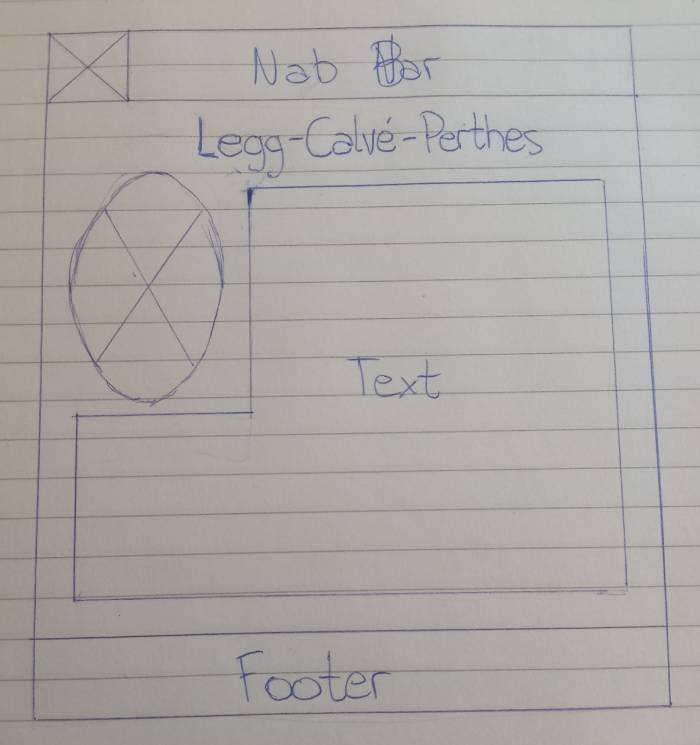 Nab Bar
Legg-Calvé-Perthes
Text
Footer